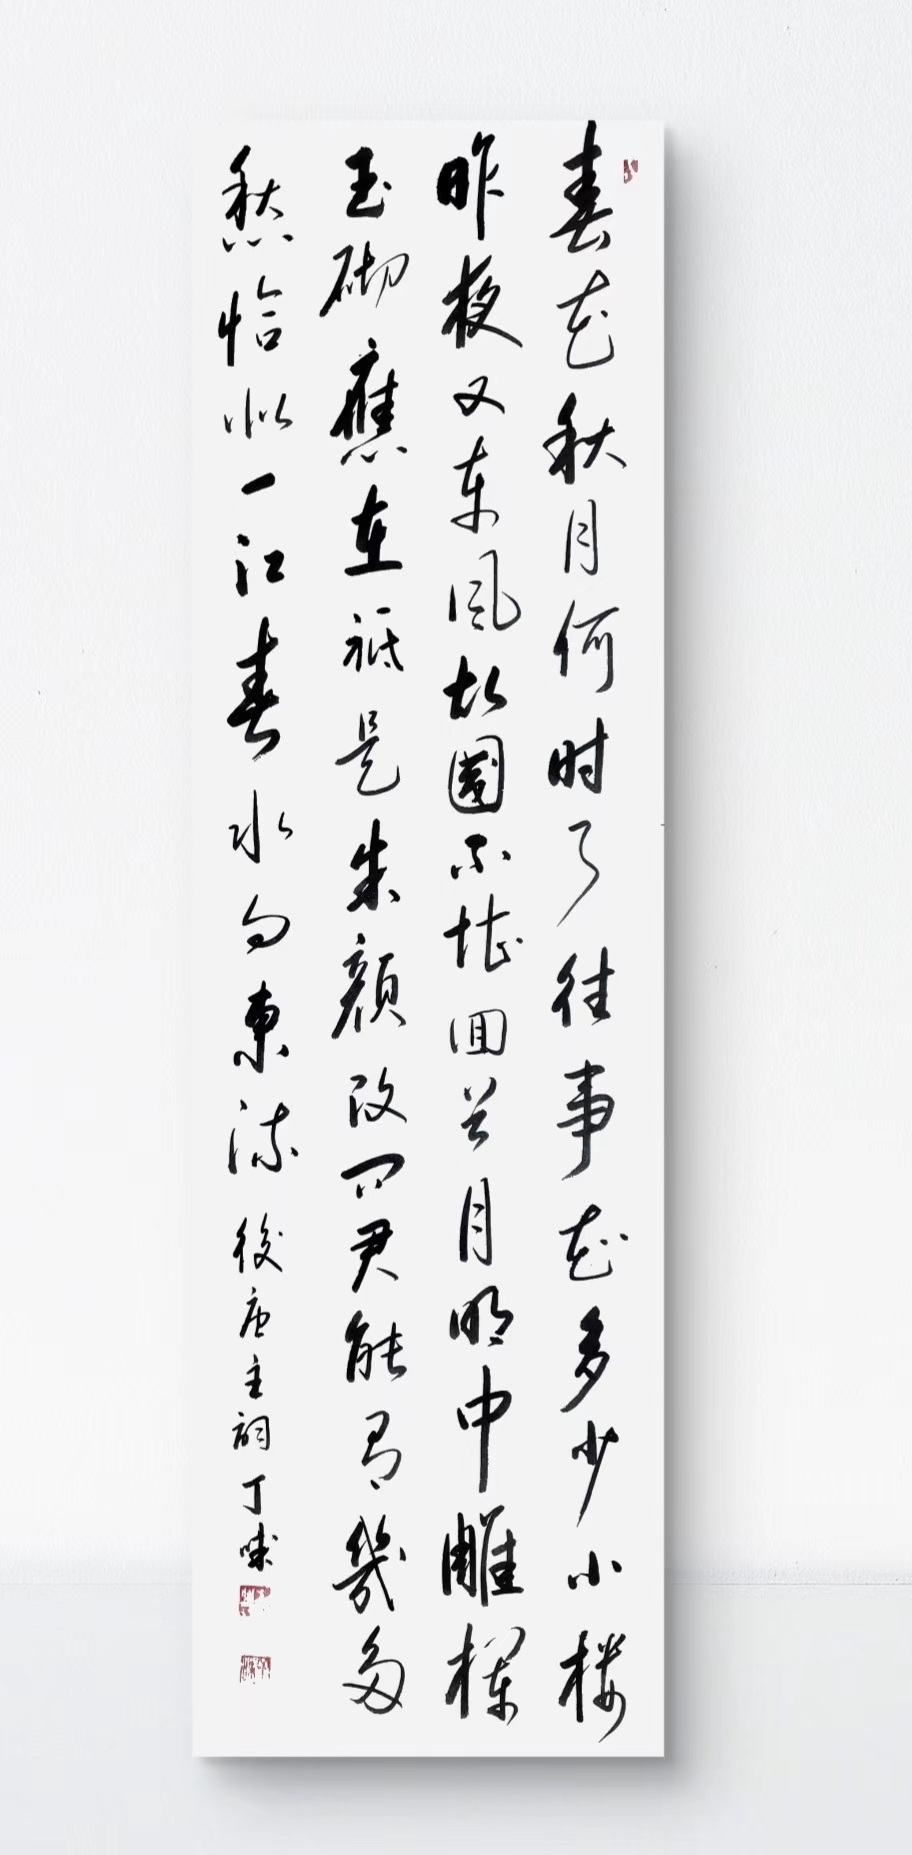 春花秋月何时了往事知多少小楼
昨夜又东风故國不堪囬首月明中雕栏
玉砌應在祗是朱颜改问君能有幾多
愁恰似一江春水向東流 後唐主詞 丁